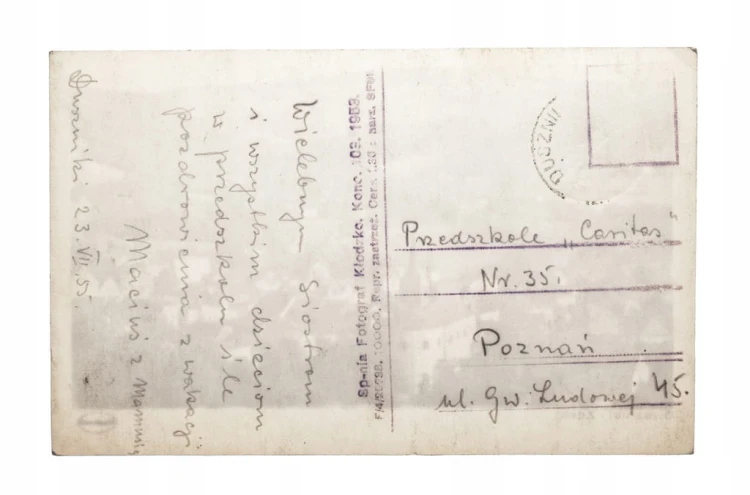 Duszniki 23.VII.55.
Wielebnym Siostrom
i wszystkim dzieciom
w przedszkolu śle
pozdrowienia z wakacji
Maciuś z Mamusią
Sp-nia Fotograf Kłodzko. Konc. 109. 1953.
Repr. zastrzeż. Cena
DUSZNIKI
Przedszkole „Caritas"
Nr. 35.
Poznań
ul. Gw. Ludowej 45.